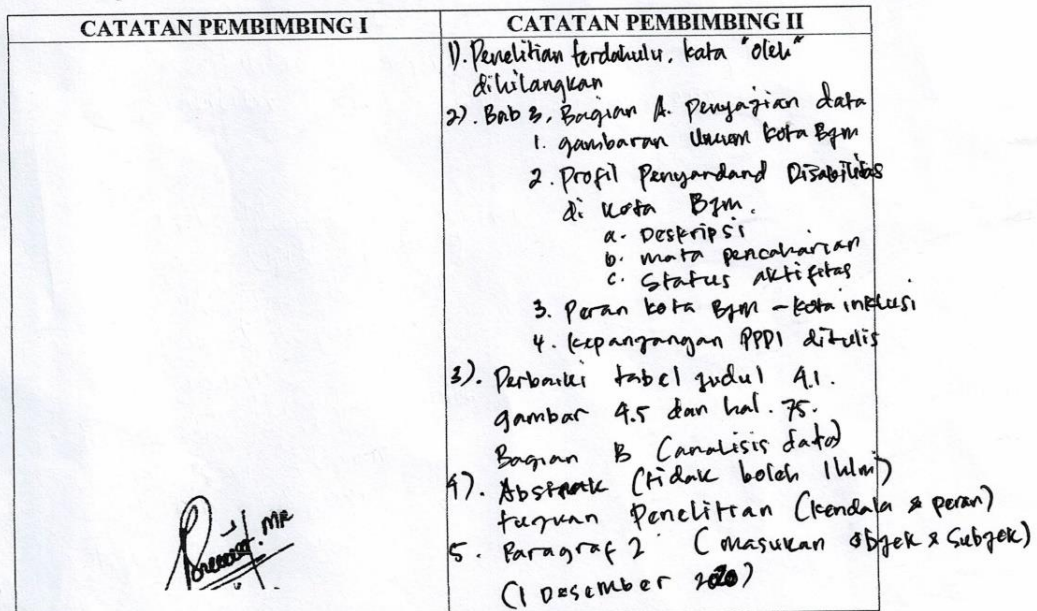 CATATAN PEMBIMBING I
CATATAN PEMBIMBING II
1). Penelitian terdahulu, kata "oleh"
dihilangkan
2). Bab 3, Bagian A. penyajian data
1. gambaran Umum Kota Bjm
2. Profil Penyandand Disabilitas
di Kota Bjm.
a. Deskripsi
b. mata pencaharian
c. Status aktifitas
3. Peran kota Bjm - kota inklusi
4. Kepanjangan PPDI ditulis
3). Perbaiki tabel judul 4.1.
gambar 4.5 dan hal. 75.
Bagian B (analisis data)
4). Abstrak (tidak boleh 1 hlm)
tujuan Penelitian (kendala & peran)
5. Paragraf 2 (masukan objek & Subjek)
(1 Desember 2020)